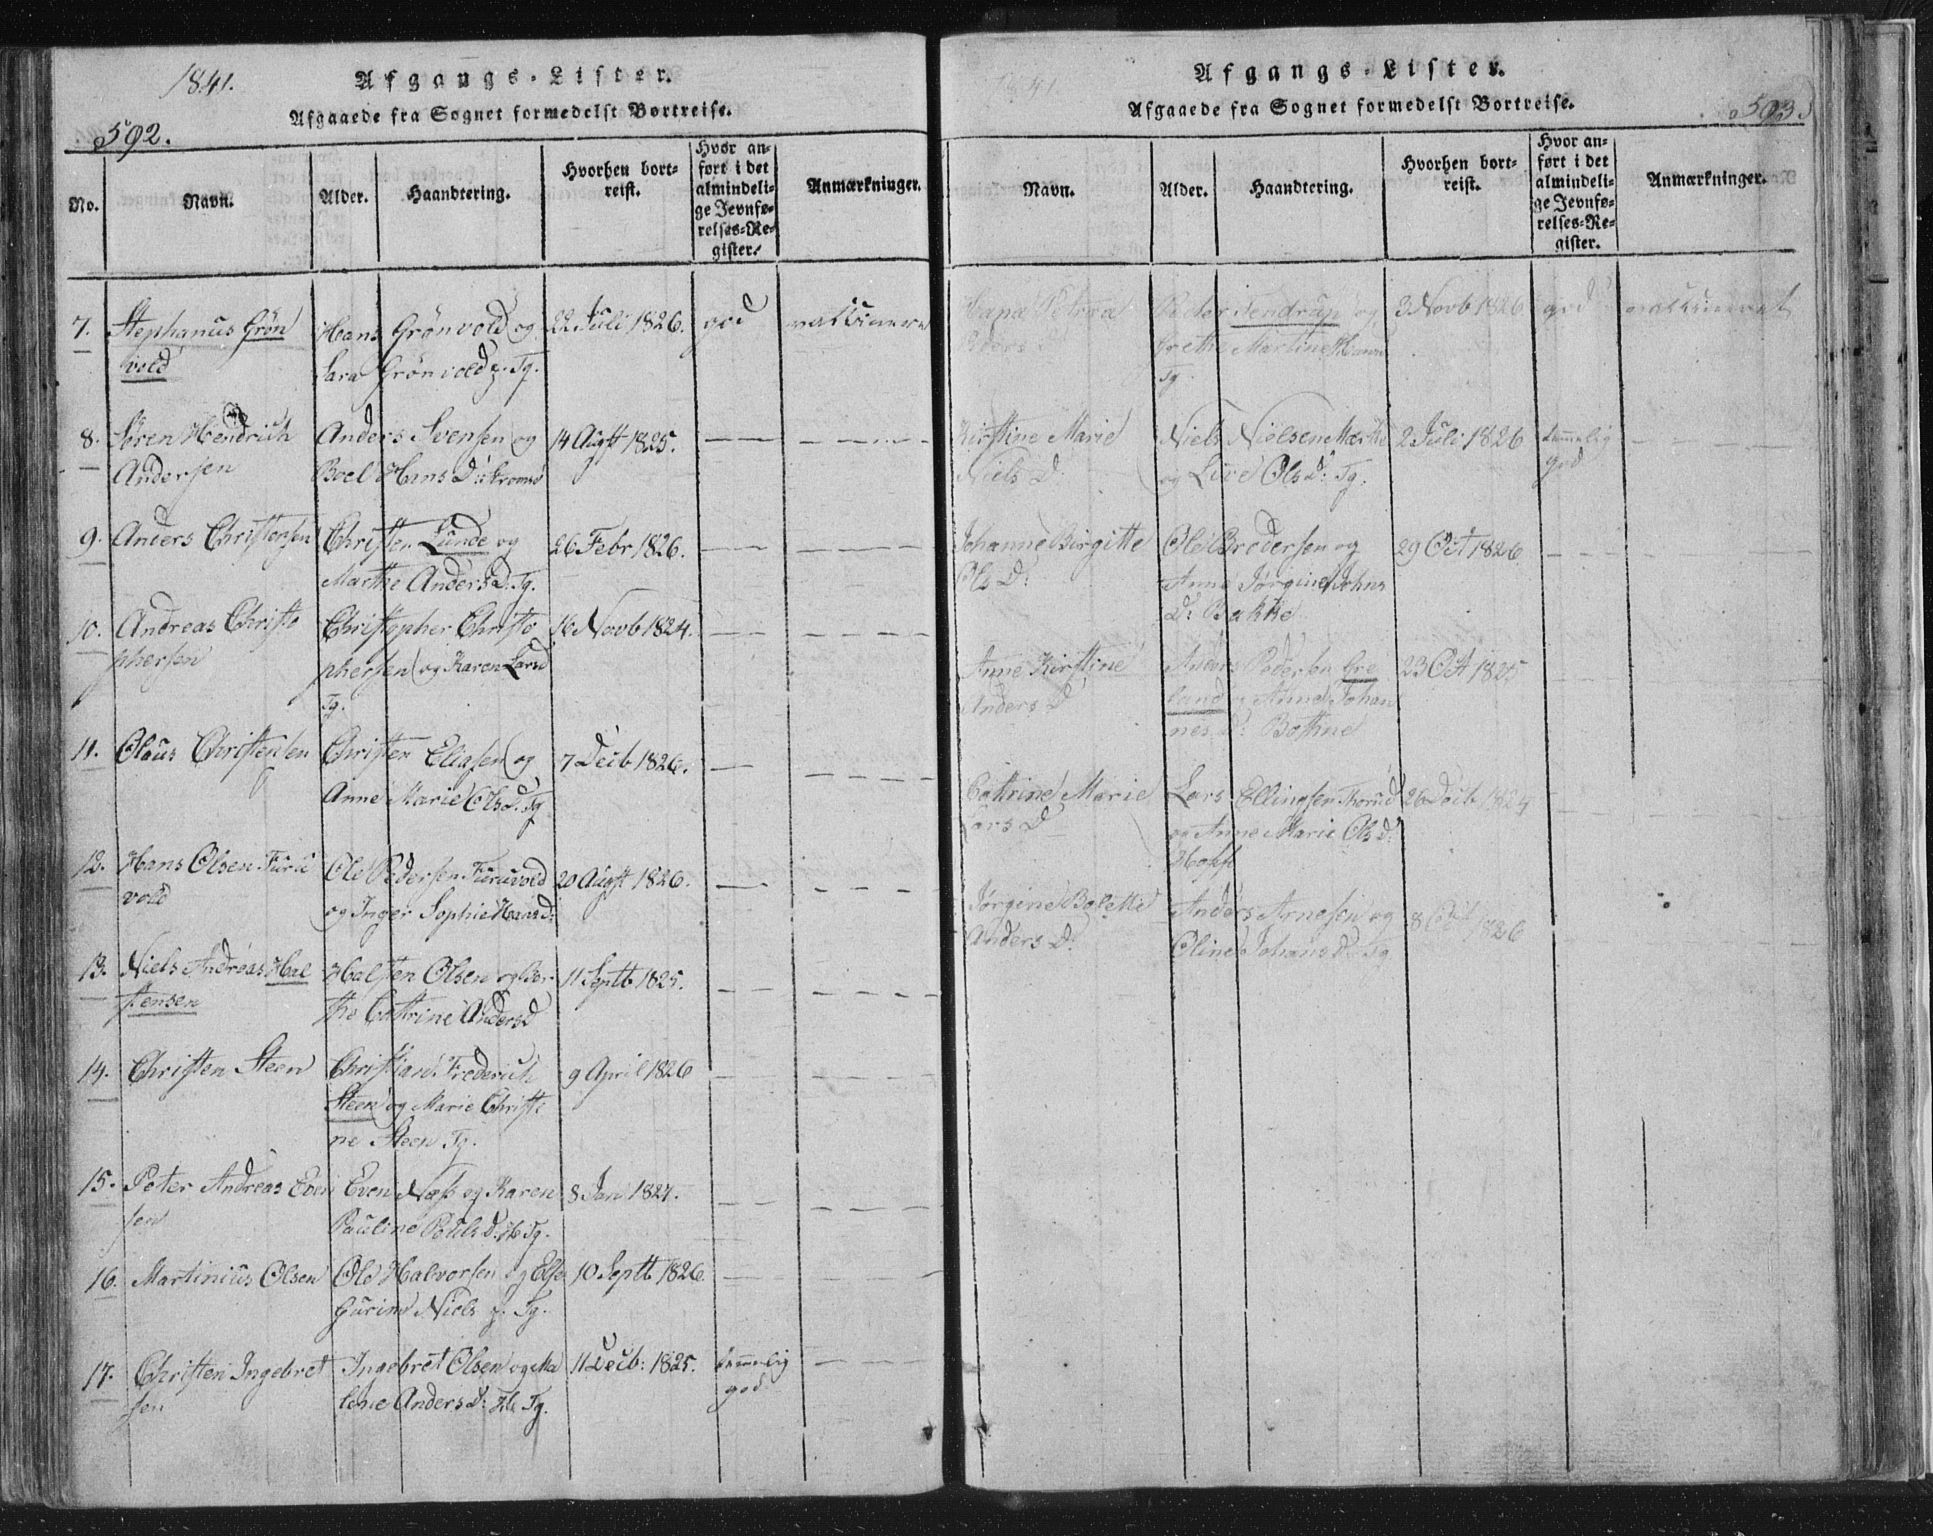 1841.
Afgangs-Lister.
Afgaaede fra Sognet formedelst Bortreise.
592.
No. Navn. Alder. Haandtering. Hvorhen bortreist. Hvor anført i det almindelige Jevnførelses-Register. Anmærkninger.
7. Stephanus Grön Hans Grönvold og 22 Juli 1826. god
vold Sara Grönvold Tg.
8. Sören Hendrich Anders Svensen og 14 Augst 1825. — —
Andersen Boel Hans D.
9. Anders Christensen Christen Lunde og 26 Febr 1826. — —
Marthe Anders D. Tg.
10. Andreas Christo Christopher Christo 16 Novb 1824. — —
phersen phersen og Karen Lars D
Tg.
11. Olaus Christensen Christen Eliasen og 7 Decb 1826. — —
Anne Marie Ols D. Tg
12. Hans Olsen Furu Ole Pedersen Furuvold 20 Augst 1826. — —
vold og Inger Sophie Hans D:
13. Niels Andreas Hal Halsten Olsen og Ber- 11 Septb 1825. — —
stensen the Cathrine Anders D
14. Christen Steen Christian Frederich 9 April 1826 — —
Steen og Marie Christi
ne Steen Tg.
15. Peter Andreas Even Even Næss og Karen 8 Jan 1827. — —
sen Pauline D: Tg.
16. Martinius Olsen Ole Halvorsen og Else 10 Septb 1826. — —
Gurine Niels Tg.
17. Christen Ingebret Ingebret Olsen og Ma 11 Decb: 1825. temmelig — —
sen lene Anders D: Tg. god
1841.
Afgangs-Lister.
Afgaaede fra Sognet formedelst Bortreise.
593.
Navn. Alder. Haandtering. Hvorhen bortreist. Hvor anført i det almindelige Jevnførelses-Register. Anmærkninger.
Petrea Peder Vendrup og 3 Novb 1826 god
Peders D Grethe Martine
Tg
Kirstine Marie Niels Nielsen 2 Juli 1826 temmelig — —
Niels D: og Live Ols D: Tg. god
Johanne Birgitte Ole Brodersen og 29 Oct 1826 — —
Ols D: Anne Jørgine Johns
D: Bakke
Anne Kirstine Anders Pedersen Gre 23 Oct 1825 — —
Anders D lund og Anne Johan
nes D: Bothne
Cathrine Marie Lars Ellingsen Thorud 26 Decb 1824 — —
Lars D og Anne Marie Ols D:
Hoff
Jørgine Bolette Anders Arnesen og 8 Oct 1826 — —
Anders D: Oline Johans D: Tg